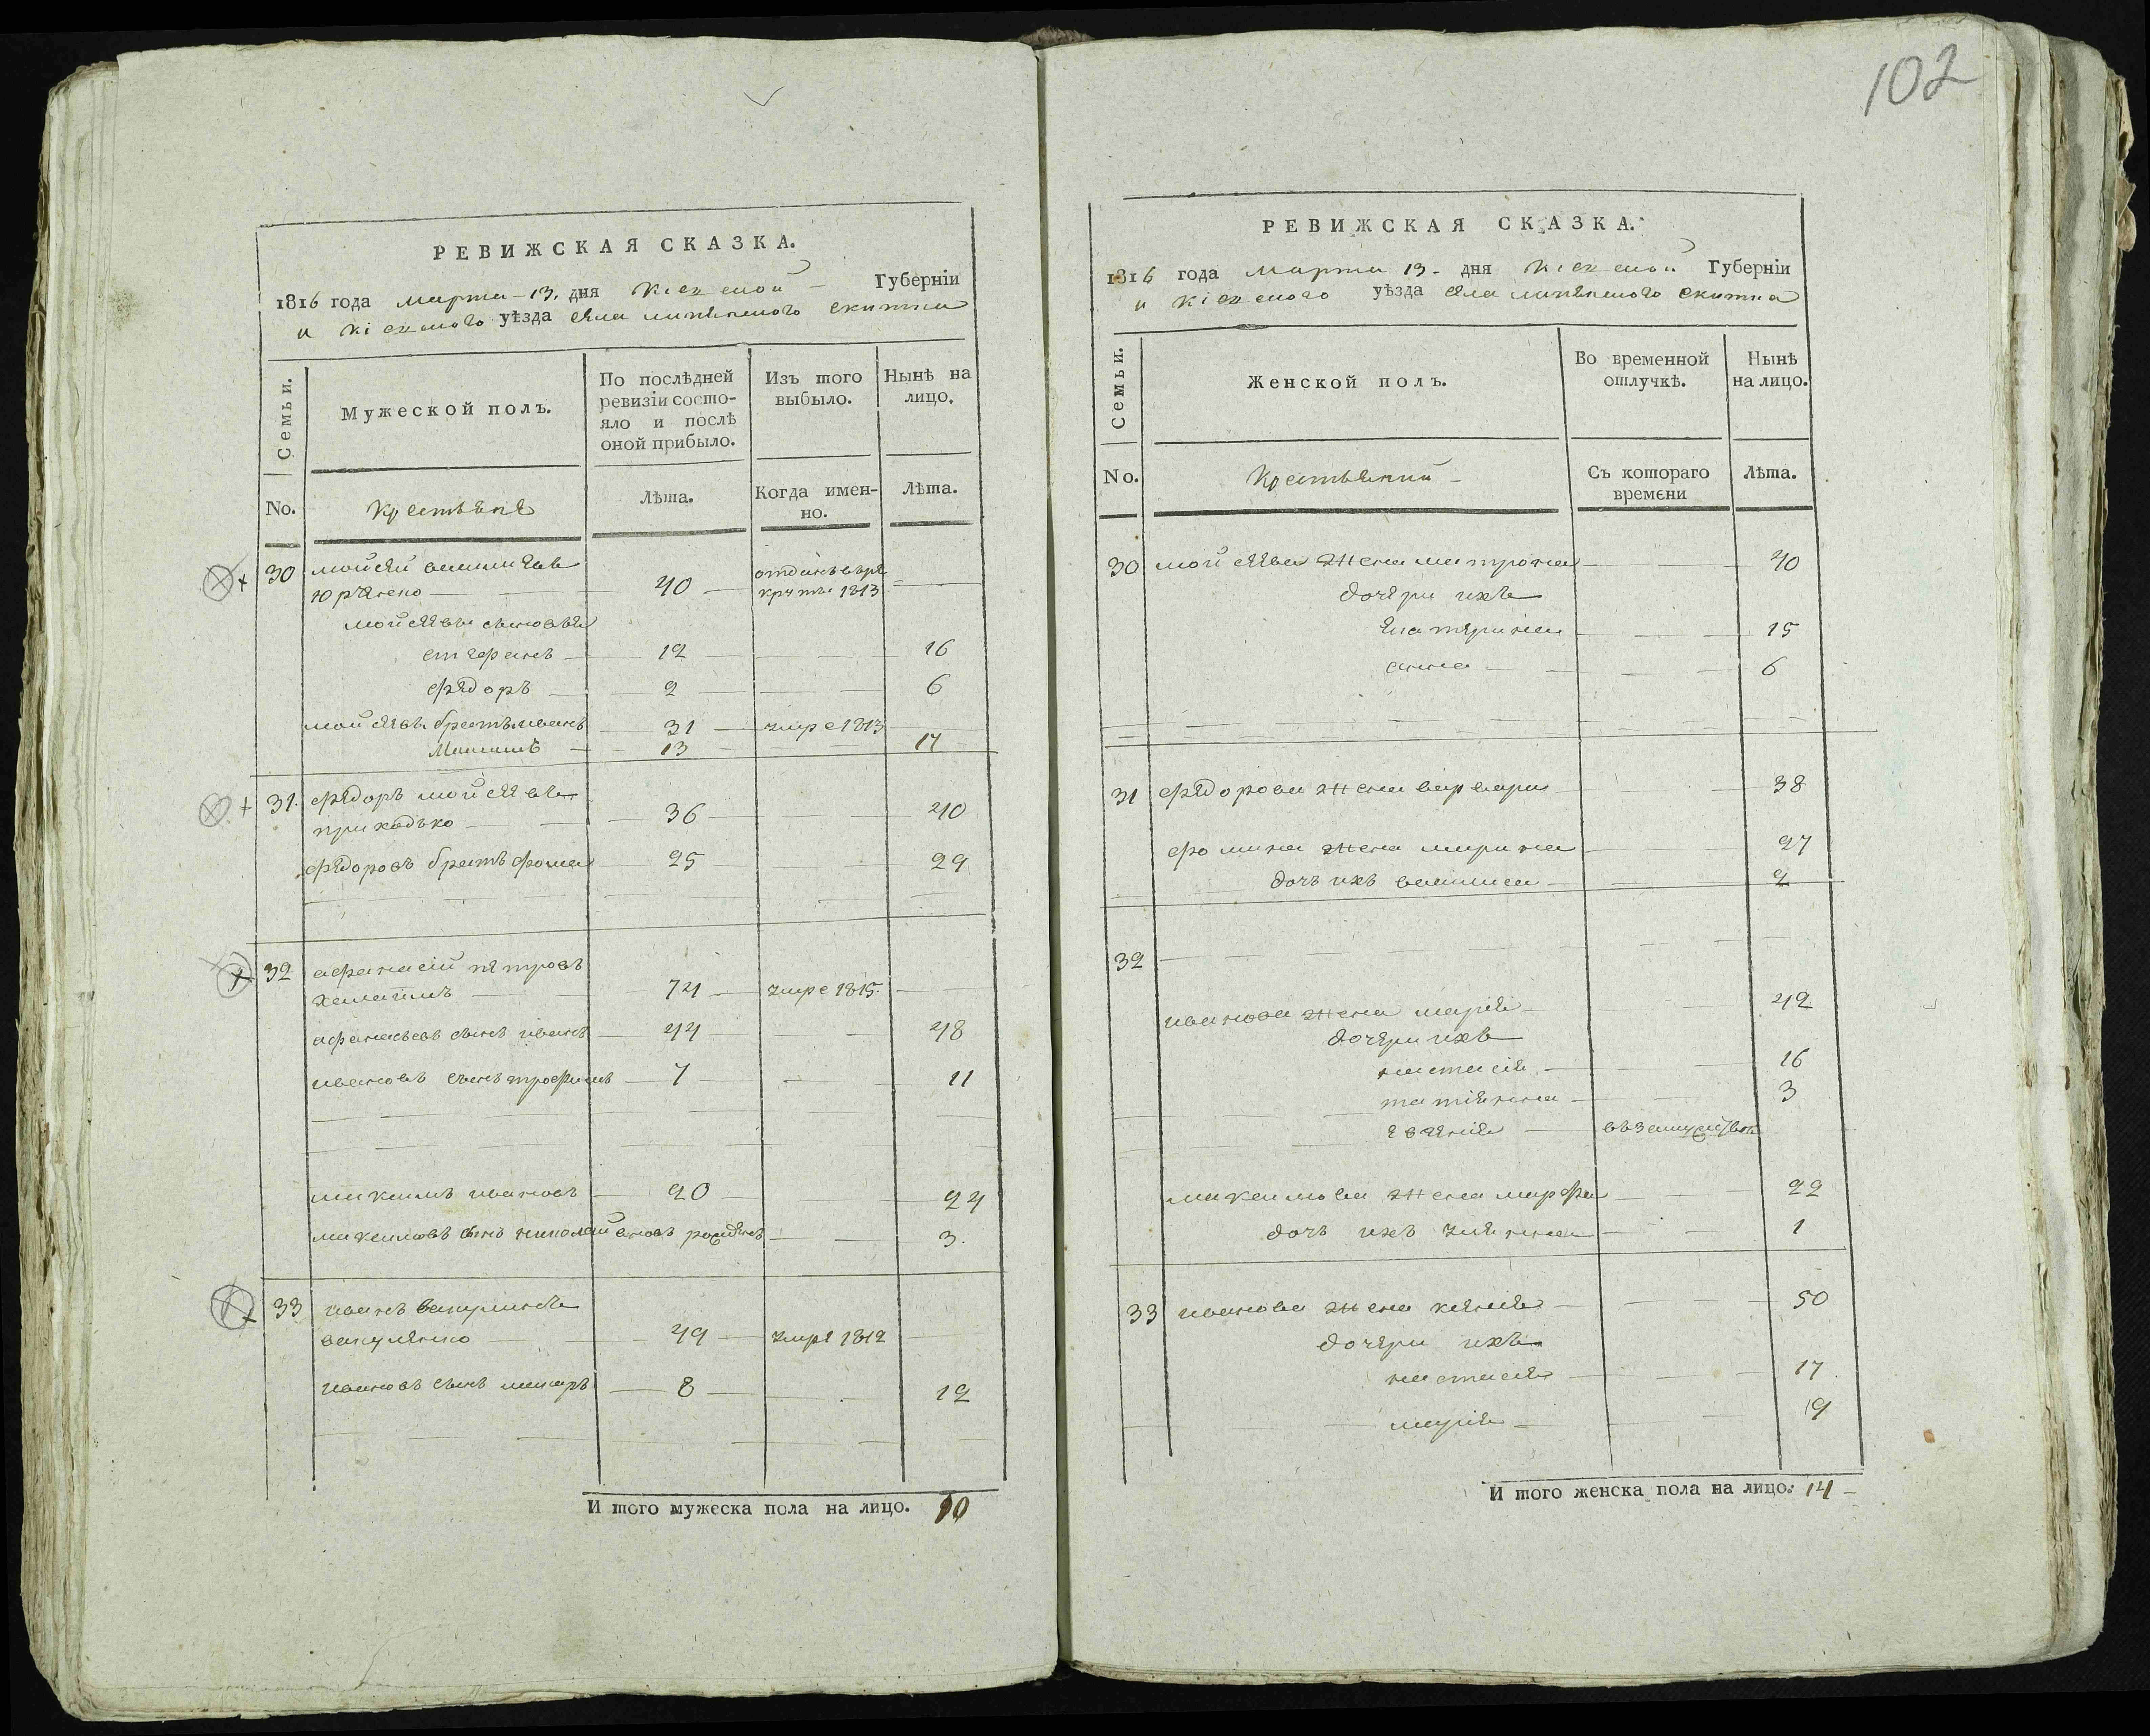 102
РЕВИЖСКАЯ СКАЗКА.
1816 года марта 13. дня кіевской Губерніи
и кіевского уѣзда села скитка
Семьи.
Мужеской полъ.
По послѣдней ревизіи состояло и послѣ оной прибыло.
Изъ того выбыло.
Нынѣ на лицо.
No.
крестьяне
Лѣта.
Когда именно.
Лѣта.
30 мойсей
юрченко 40 отданъ в рекруты 1813
мойсеевы сыновья
стефанъ 12 16
федоръ 2 6
мойсеевъ братъ иванъ 31 умре 1813
13 17
31. федоръ мойсеевъ
приходько 36 40
федоровъ братъ фома 25 29
32 афанасій петровъ
74 умре 1815.
афанасьевъ сынъ иванъ 44 48
ивановъ сынъ трофимъ 7 11
максимъ ивановъ 20 24
максимовъ сынъ николай вновь рожденъ 3.
33 иванъ
вакуленко 49 умре 1812
ивановъ сынъ макаръ 8 12
И того мужеска пола на лицо. 10
РЕВИЖСКАЯ СКАЗКА.
1816 года марта 13. дня кіевской Губерніи
и кіевского уѣзда села скитка
Семьи.
Женской полъ.
Во временной отлучкѣ.
Нынѣ на лицо.
No.
крестьянки
Съ котораго времени
Лѣта.
30 мойсеева жена матрона 40
дочери ихъ
екатерина 15
анна 6
31 федорова жена варвара 38
фомина жена марина 27
дочь ихъ васинса 2
32
иванова жена марія 42
дочери ихъ
настасія 16
татіянна 3
евгенія въ замужствѣ
максимова жена марфа 22
дочь ихъ уліянна 1
33 иванова жена ксенія 50
дочери ихъ
настасія 17
марія 9
И того женска пола на лицо: 14